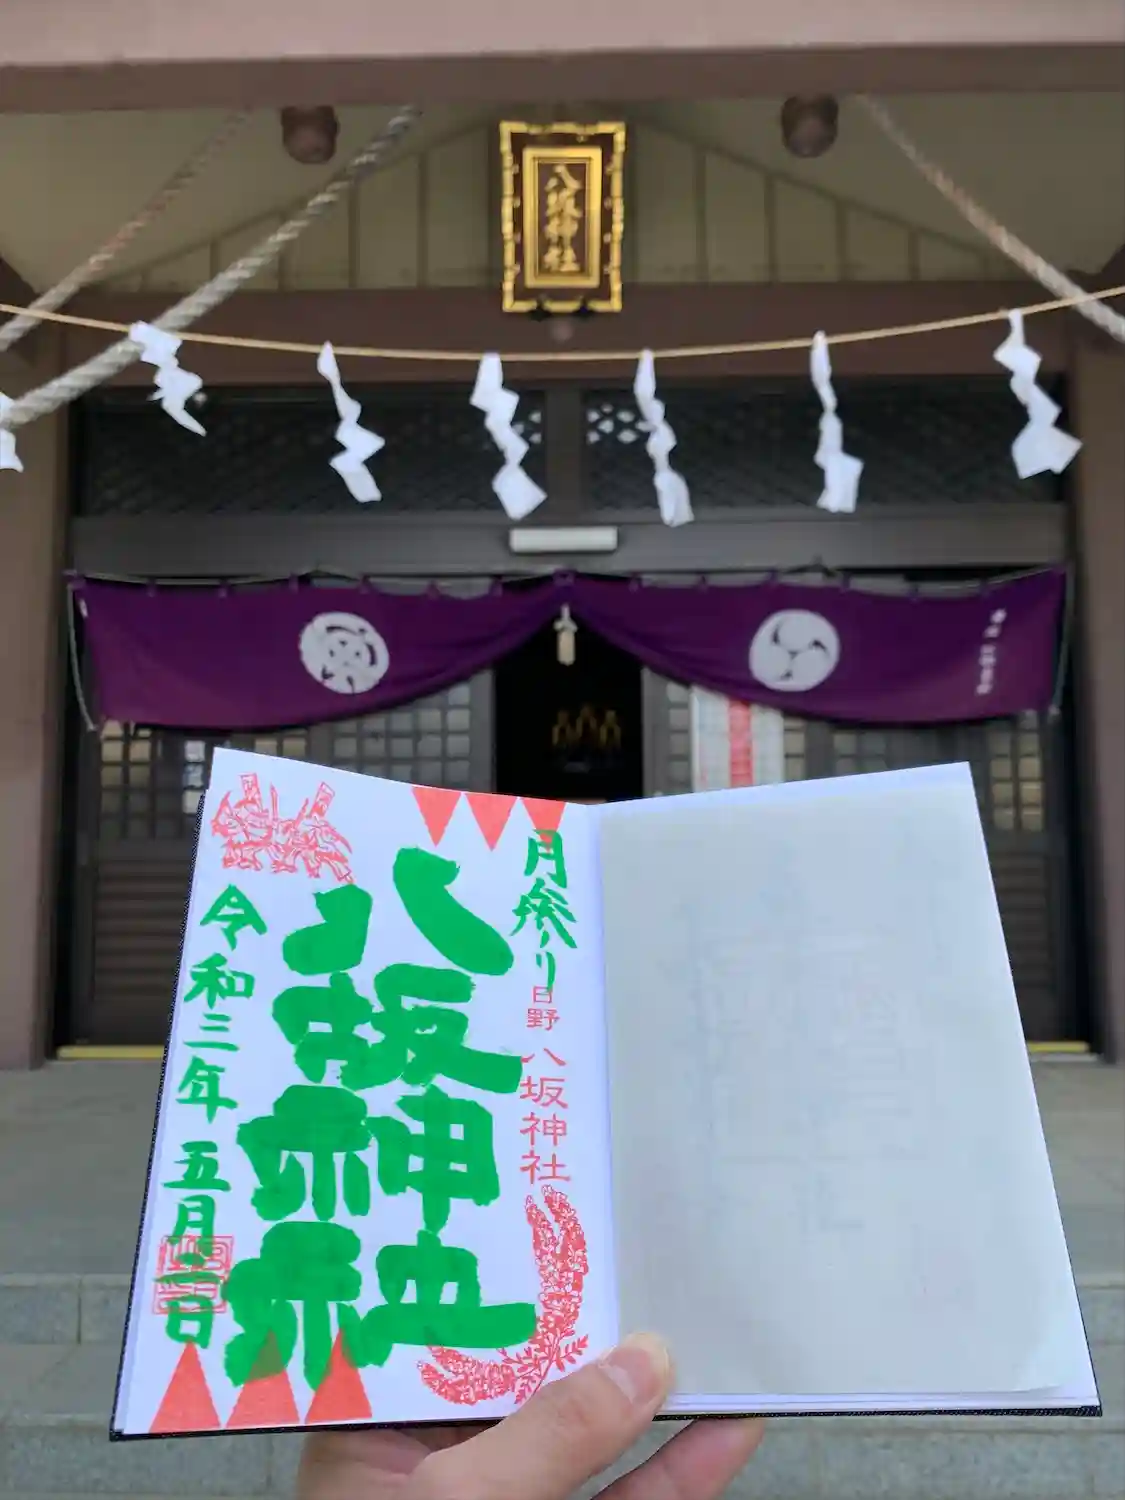 八坂神社
月参り
日野 八坂神社
八坂神社
令和三年 五月二日